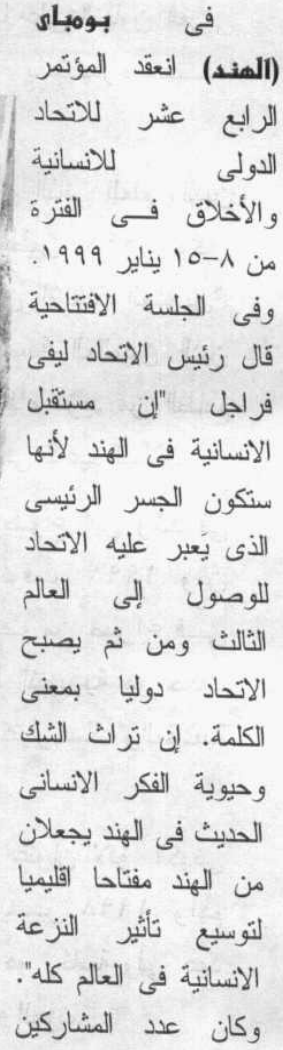 فى بومباى
(الهند) انعقد المؤتمر
الرابع عشر للاتحاد
الدولى للانسانية
والأخلاق فــى الفترة
من ٨-١٥ يناير ١٩٩٩.
وفى الجلسة الافتتاحية
قال رئيس الاتحاد ليفى
فراجل "إن مستقبل
الانسانية فى الهند لأنها
ستكون الجسر الرئيسى
الذى يَعبر عليه الاتحاد
للوصول إلى العالم
الثالث ومن ثم يصبح
الاتحاد دوليا بمعنى
الكلمة. إن تراث الشك
وحيوية الفكر الانسانى
الحديث فى الهند يجعلان
من الهند مفتاحا اقليميا
لتوسيع تأثير النزعة
الانسانية فى العالم كله".
وكان عدد المشاركين